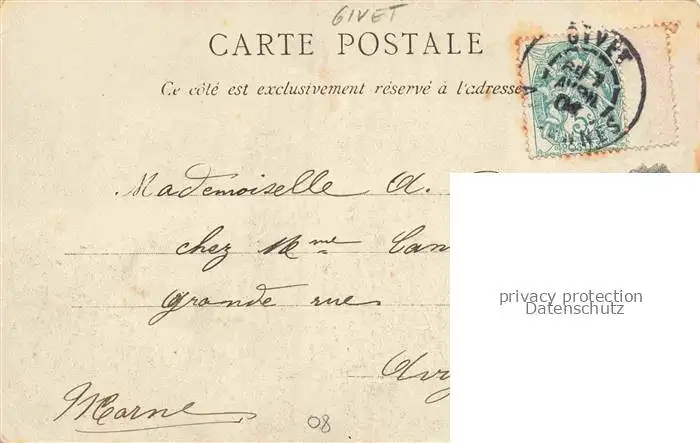 GIVET
CARTE POSTALE
Ce côté est exclusivement réservé à l'adresse
GIVET
Mademoiselle A.
chez Mme Can
Grande rue
privacy protection
Datenschutz
Marne
08